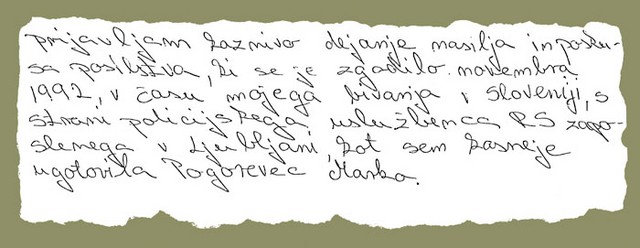 prijavljam kaznivo dejanje nasilja in posku-
sa posilstva, ki se je zgodilo novembra
1992, v času mojega bivanja v Sloveniji, s
strani policijskega uslužbenca RS zapo-
slenega v Ljubljani, kot sem kasneje
ugotovila Pogorevec Marko.